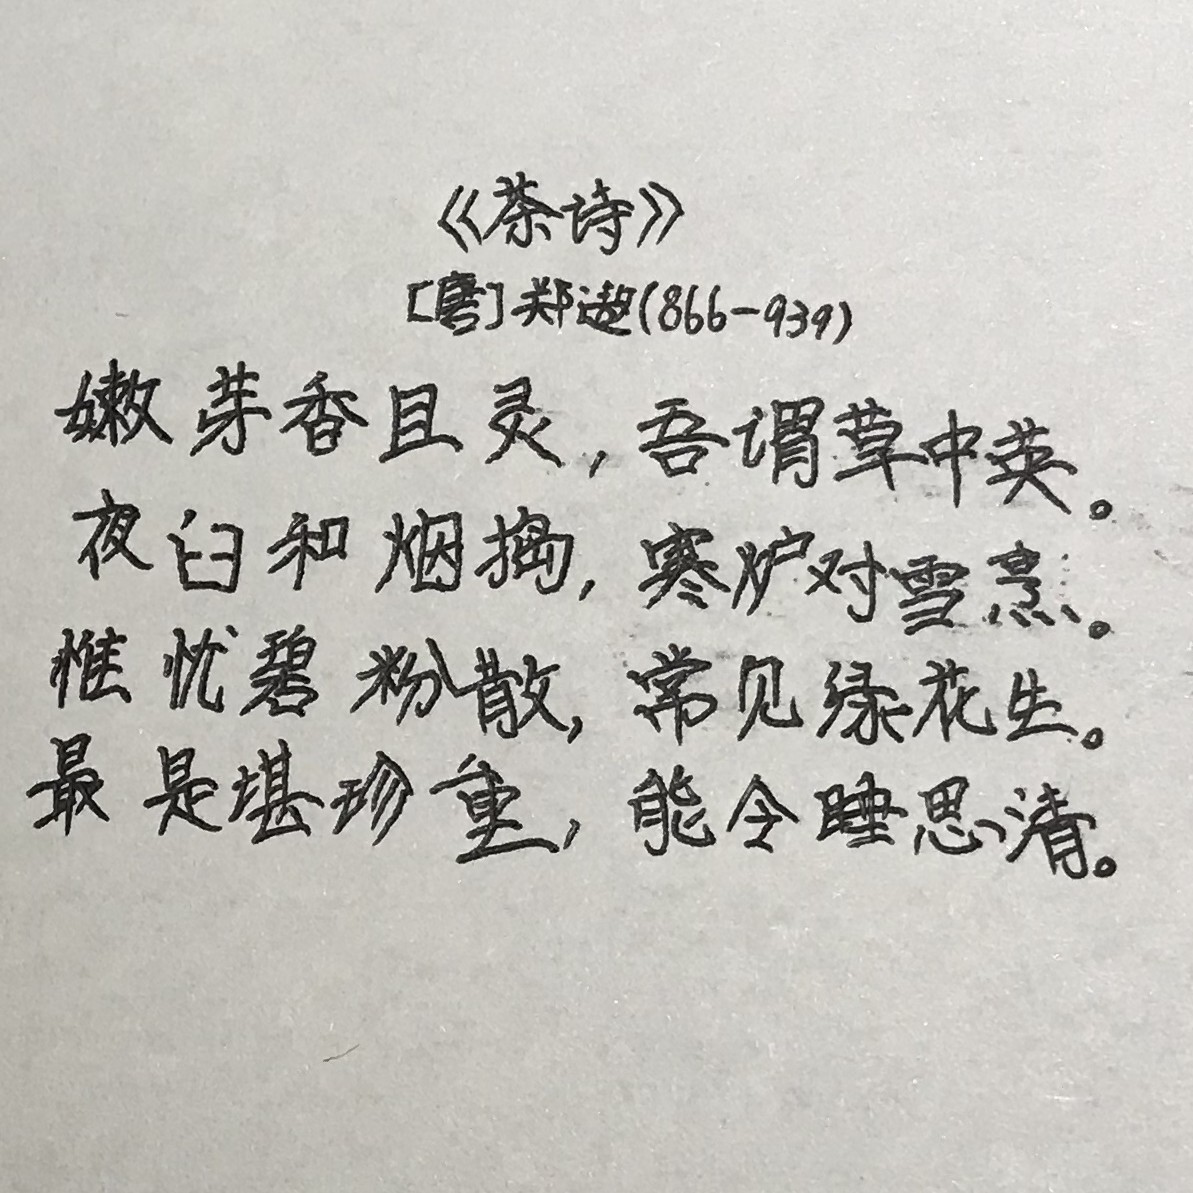 《茶诗》
[唐]郑遨(866-939)
嫩芽香且灵,吾谓草中英。
夜臼和烟捣,寒炉对雪烹。
惟忧碧粉散,常见绿花生。
最是堪珍重,能令睡思清。